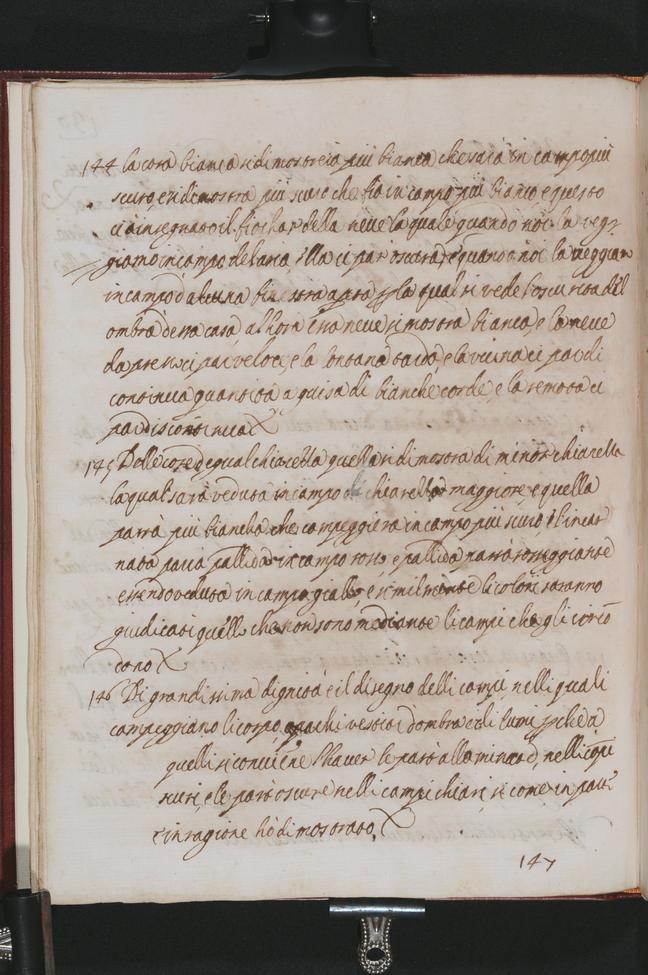 144 la cosa bianca si dimostrerà più bianca che sarà in campo più
scuro, e si dimostra più scura che fia in campo più bianco e questo
ci a insegnato il fiochar della neve la quale quando noi la veg-
giamo in campo del aria, ella ci par oscura, e quando noi la veggian
in campo d'alcuna finestra aperta per la qual si vede l'oscurità del
ombra dessa casa, alhora essa neve si mostra bianca, e la neve
da presso ci par veloce, e la lontana tarda, e la vicina ci par di
continua quantità a guisa di bianche corde, e la remota ci
par discontinua
145 Delle cose d'equal chiarezza quella si dimostra di minor chiarezza
la qual sarà veduta in campo di chiarezza maggiore, e quella
parrà più biancha che campeggierà in campo più scuro, e l'incar
nata parrà pallida in campo rosso, e pallida parrà rosseggiante
essendo veduta in campo giallo, e similmente li colori saranno
giudicati quello che non sono mediante li campi che gli circō
dono
146 Di grandissima dignità è il disegno delli campi nelli quali
campeggiano li corpi opachi vestiti d'ombra et di lumi perche a
quelli si conviene l'haver le parti alluminate nelli campi
scuri, e le parti oscure nelli campi chiari, si come in par
te in ragione hò dimostrato,
147